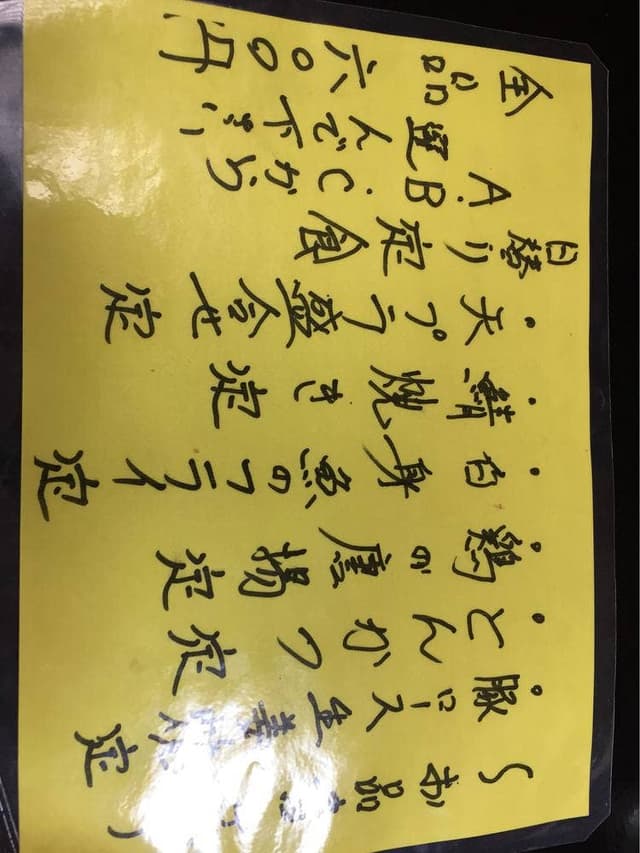 〜お品書き〜
・豚ロース生姜焼定
・とんかつ定
・鶏の唐揚定
・白身魚のフライ定
・鯖焼き定
・天プラ盛合せ定
日替り定食
A.B.Cから
選んで下さい
全品六〇〇円